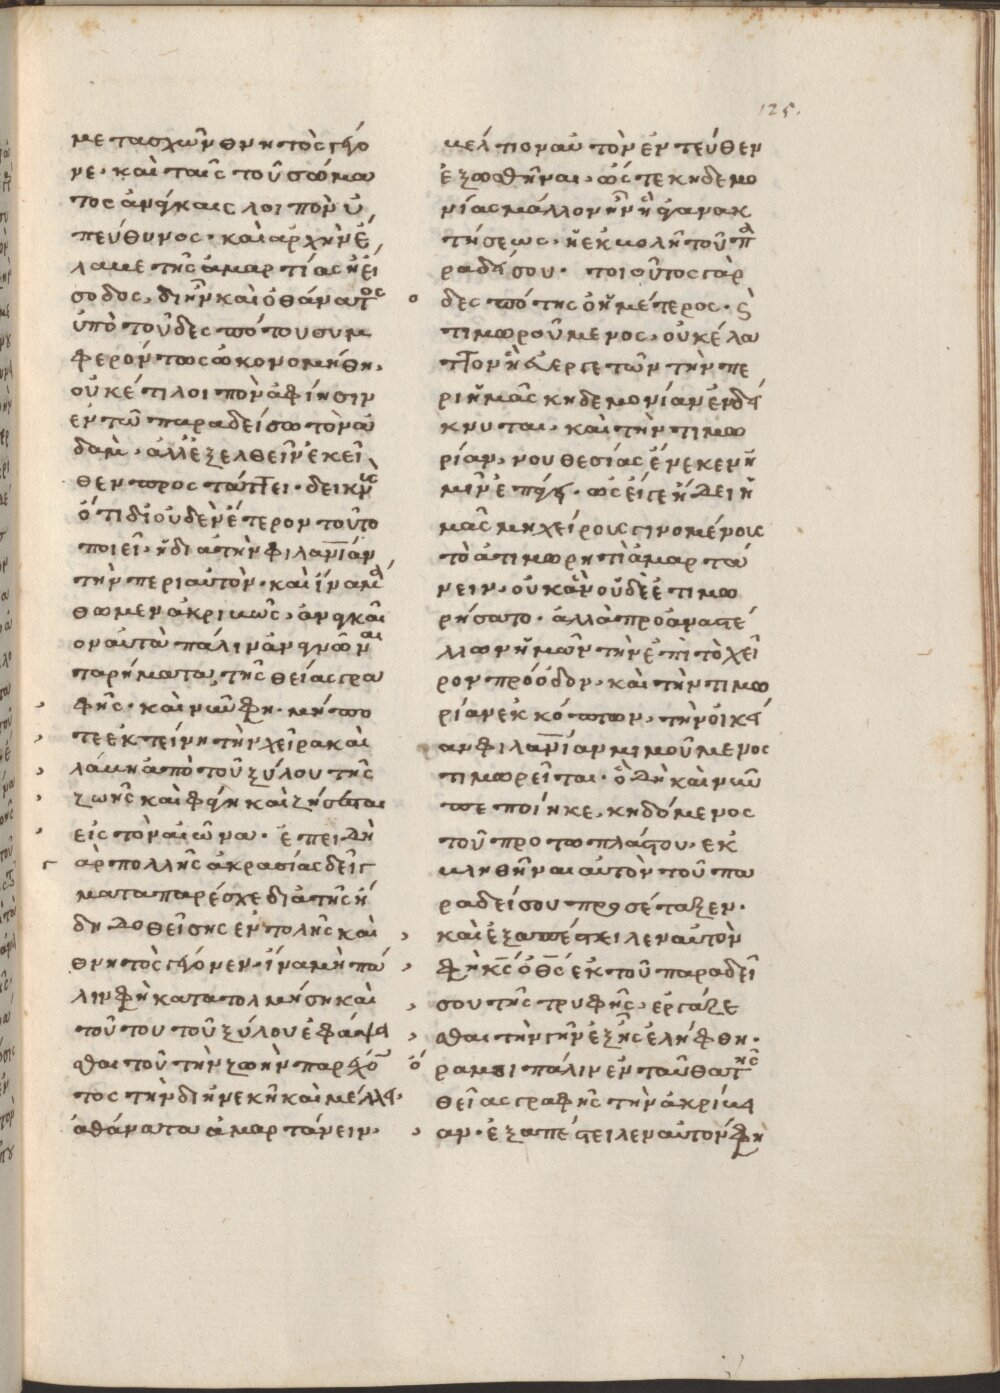 125.
μετασχὼν θνητὸς γέγο
νε· καὶ ταῖς τοῦ σώμα
τος ἀνάγκαις λοιπὸν ὑ
πεύθυνος· καὶ ἀρχὴν ἔ
λαβε τῆς ἁμαρτίας ἡ εἴ
σοδος, δι' ἣν καὶ ὁ θάνατος
ὑπὸ τοῦ δεσπότου συμ
φερόντως ὠκονομήθη,
οὐκέτι λοιπὸν ἀφίησιν
ἐν τῶ παραδείσω τὸν ἀ
δὰμ· ἀλλ' ἐξελθεῖν ἐκεῖ
θεν προστάττει· δεικνὺς
ὅτι δι' οὐδὲν ἕτερον τοῦτο
ποιεῖ· ἢ διὰ τὴν φιλανίαν
τὴν περὶ αὐτὸν· καὶ ἵνα μά
θωμεν ἀκριβῶς, ἀναγκαῖ
ον αὐτὰ πάλιν ἀναγνῶναι
τὰ ρήματα, τῆς θείας γρα
φῆς· καὶ νῦν φη· μήπο
τε ἐκτείνη τὴν χεῖρα καὶ
λάβη ἀπὸ τοῦ ξύλου τῆς
ζωῆς καὶ φάγη καὶ ζήσεται
εἰς τὸν αἰῶνα· ἐπειδὴ
γὰρ πολλῆς ἀκρασίας δεῖγ
ματα παρέσχε διὰ τῆς ἤ
δη δοθείσης ἐντολῆς καὶ
θνητὸς γέγονεν· ἵνα μὴ πά
λιν φη κατατολμήση καὶ
τούτου τοῦ ξύλου ἐφάψα
σθαι τοῦ τὴν ζωὴν παρέχον
τος τὴν διηνεκῆ καὶ μέλλει
ἀθάνατα ἁμαρτάνειν·
βέλτιον αὐτὸν ἐντεῦθεν
ἐξωθῆναι· ὥστε κηδεμο
νίας μᾶλλον ἦν ἢ ἀγανακ
τήσεως· ἡ ἐκβολὴ τοῦ πα
ραδείσου· τοιοῦτος γὰρ
ὁ δεσπότης ὁ ἡμέτερος· καὶ
τιμωρούμενος, οὐκ ἔλα
ττον ἢ εὐεργετῶν τὴν πε
ρὶ ἡμᾶς κηδεμονίαν ἐνδεί
κνυται· καὶ τὴν τιμω
ρίαν, νουθεσίας ἕνεκεν ἡ
μῖν ἐπάγει· ὡς εἴγε ἤδει ἡ
μᾶς μὴ χείροις γινομένοις
τὸ ἀτιμωρητὶ ἁμαρτά
νειν· οὐκ ἂν οὐδὲ ἐτιμω
ρήσατο· ἀλλὰ προαναστέ
λλων ἡμῶν τὴν ἐπὶ τὸ χεῖ
ρον πρόοδον· καὶ τὴν τιμω
ρίαν ἐκκόπτων, τὴν οἰκεί
αν φιλανίαν μιμούμενος
τιμωρεῖται· ὃ δὴ καὶ νῦν
πεποίηκε, κηδόμενος
τοῦ πρωτοπλάστου· ἐκ
βληθῆναι αὐτὸν τοῦ πα
ραδείσου προσέταξεν·
καὶ ἐξαπέστειλεν αὐτὸν
φη κς ὁ θς ἐκ τοῦ παραδεί
σου τῆς τρυφῆς, ἐργάζε
σθαι τὴν γῆν ἐξ ἧς ἐλήφθη·
ὅρα μοι πάλιν ἐνταῦθα τῆς
θείας γραφῆς τὴν ἀκρίβει
αν· ἐξαπέστειλεν αὐτὸν φη